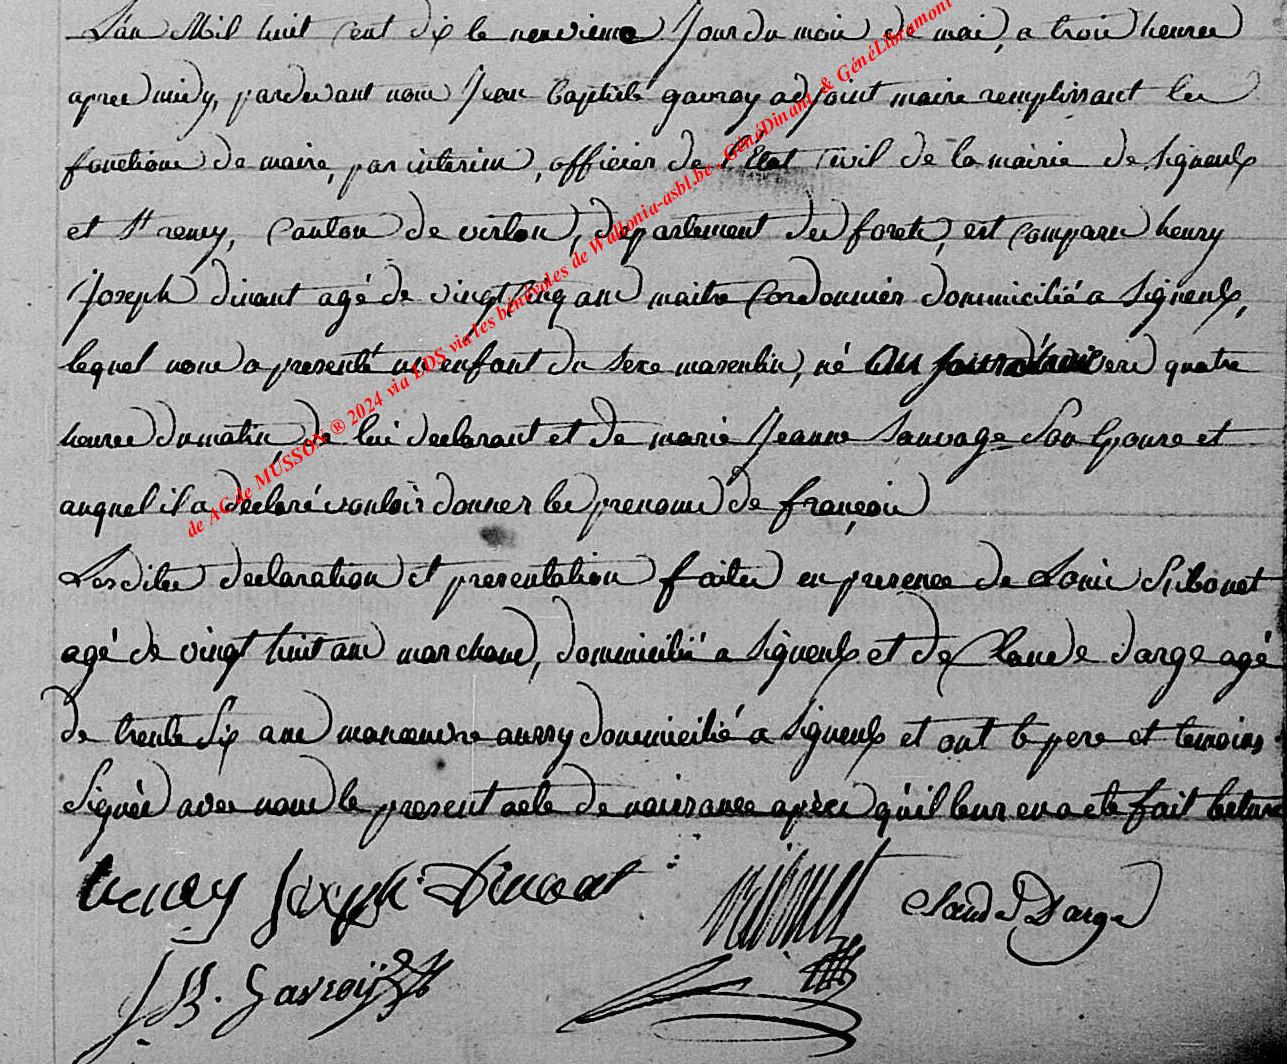 L'an Mil huit Cent dix le neuvieme Jour du mois de mai, a trois heures
apres midy, pardevant nous Jean baptiste gavroy adjoint maire remplissant les
fonctions de maire, par interim, officier de l'Etat Civil de la mairie de Signeulx
et St remy, Canton de virton, departement des forets, est Comparu henry
Joseph dinant agé de vingt Cinq ans maitre Cordonnier domicilié a Signeulx,
lequel nous a presenté un enfant du Sexe masculin, né aujourd'hui vers quatre
heures du matin, de lui declarant et de marie Jeanne Sauvage Son Epouse et
auquel il a declaré vouloir donner les prenoms de françois
Lesdites declaration et presentation faites en presence de Louis
agé de vingt huit ans marchand, domicilié a Signeulx et de Claude d'arge agé
de trente Six ans manoeuvre aussy domicilié a Signeulx et ont le pere et temoins
Signés avec nous le present acte de naissance après qu'il leur en a eté fait lecture
henry Joseph Dinant
Claude D'arge
J B. Gavroij
de AC de MUSSON ® 2024 via LDS via les bénévoles de Wallonia-asbl.be , GénéDinant & GénéLibramont